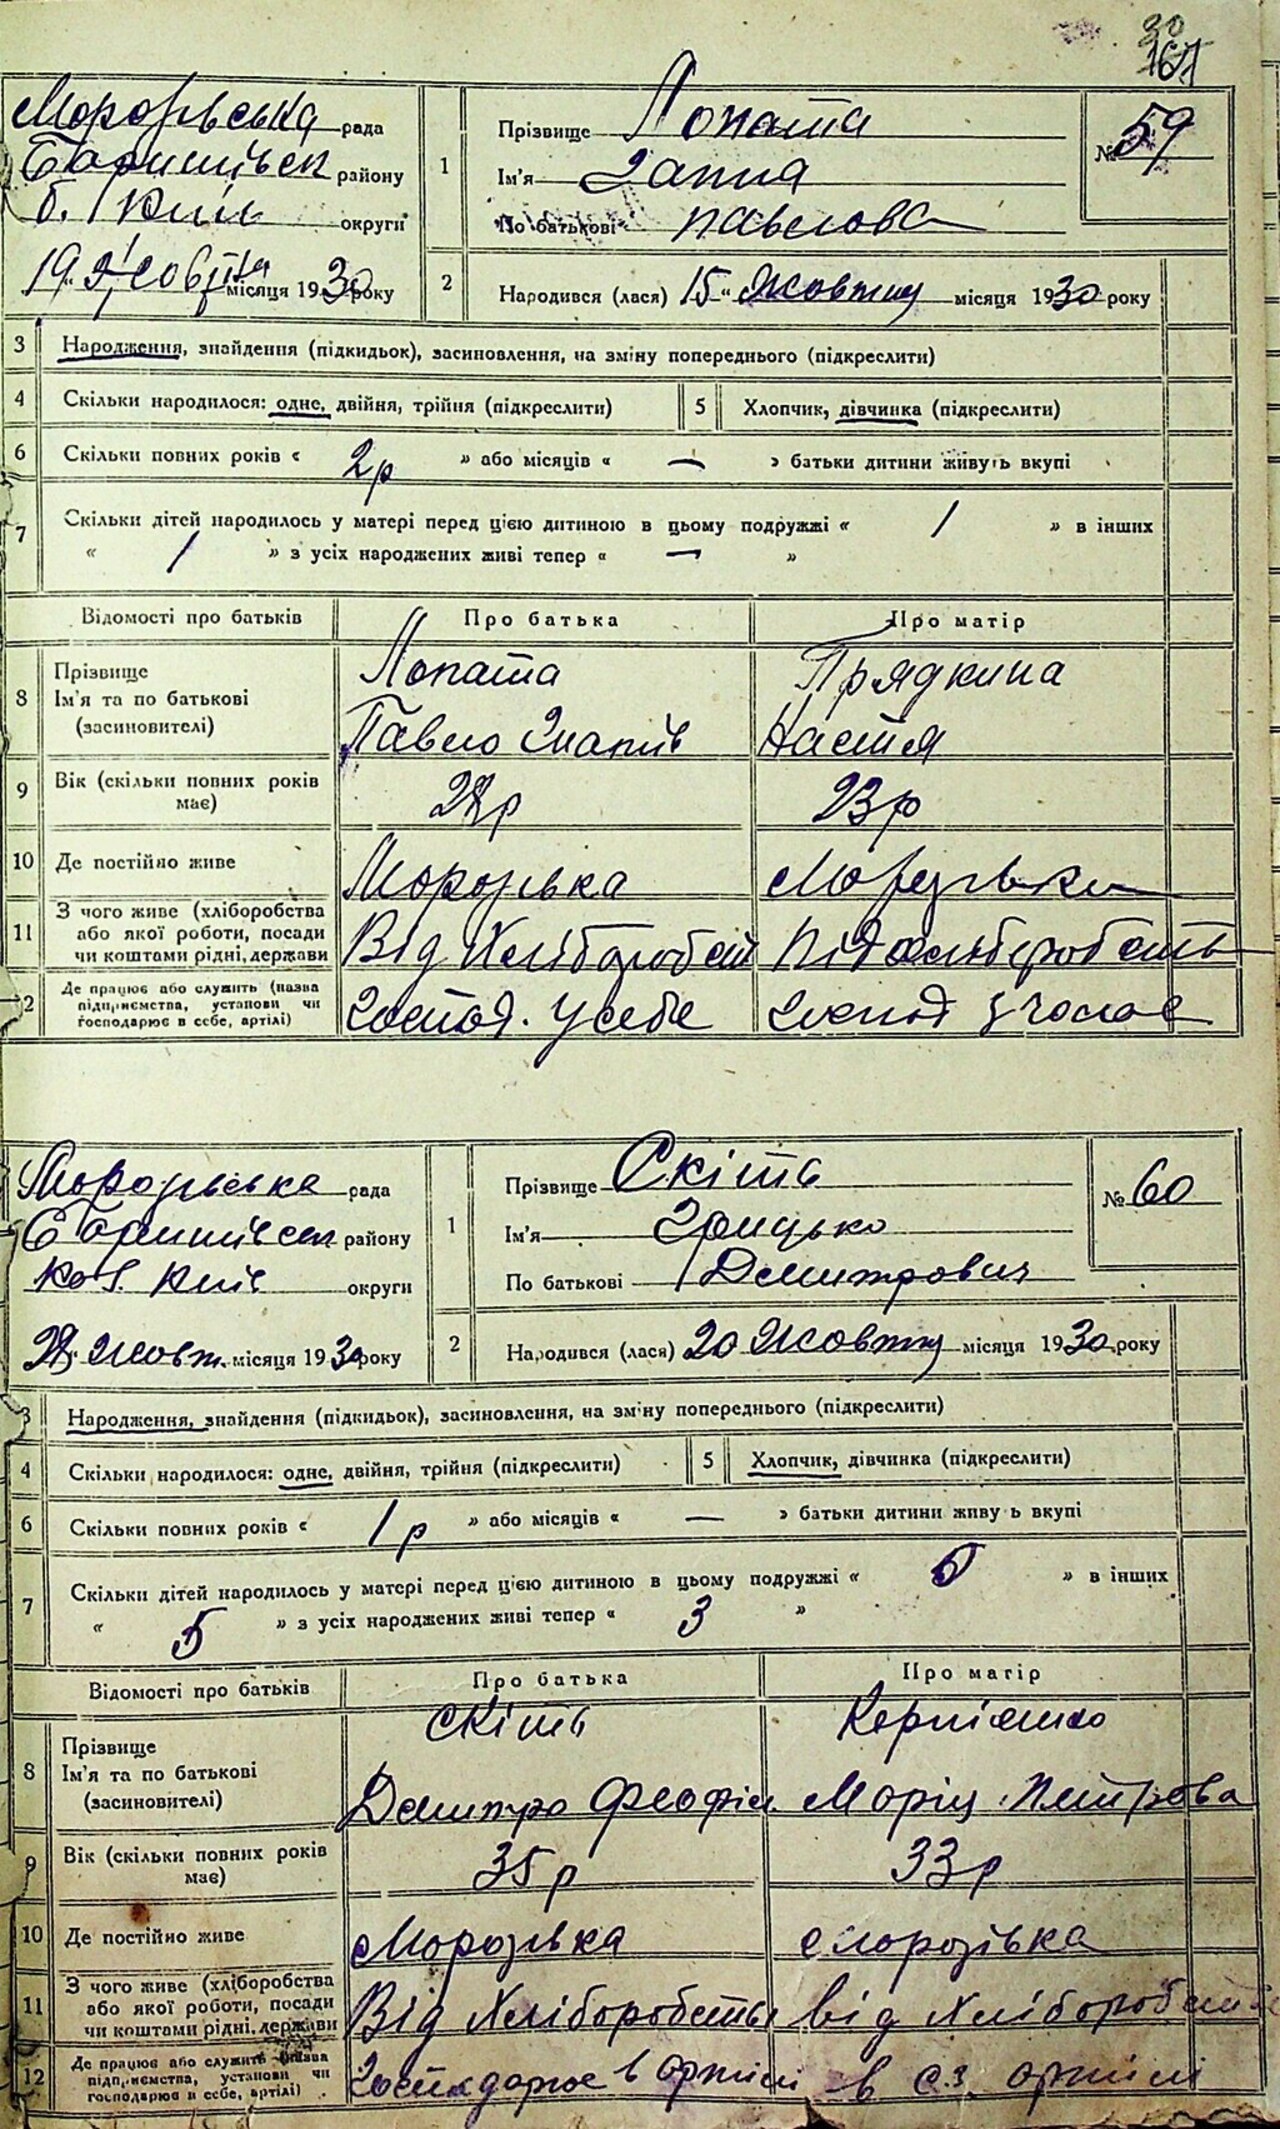 30
161
Морозівська рада
Баришівськ району
б. Київ округи
19 Жовтня місяця 1930 року
1
Прізвище Лопата
Ім'я Ганна
По батькові Павлова
№ 59
2
Народився (лася) 15 „ Жовтня місяця 1930 року
3 Народження, знайдення (підкидьок), засиновлення, на зміну попереднього (підкреслити)
4 Скільки народилося: одне, двійня, трійня (підкреслити) 5 Хлопчик, дівчинка (підкреслити)
6 Скільки повних років « 2р » або місяців « — » батьки дитини живуть вкупі
7 Скільки дітей народилось у матері перед цією дитиною в цьому подружжі « 1 » в інших
« 1 » з усіх народжених живі тепер « — »
Відомості про батьків Про батька Про матір
8 Прізвище Лопата Прядкина
Ім'я та по батькові
(засиновителі) Павло Настя
9 Вік (скільки повних років має) 22р 23р
10 Де постійно живе Морозівка Морозівка
11 З чого живе (хліборобства
або якої роботи, посади
чи коштами рідні, держави Від Хліборобств
12 Де працює або служить (назва
підприємства, установи чи
господарює в себе, артілі) Господ. у себе господ
Морозівська рада
Баришівськ району
Київ округи
Жовт. місяця 1930 року
1
Прізвище Скіть
Ім'я Грицько
По батькові Демитрович
№ 60
2
Народився (лася) 20 Жовтня місяця 1930 року
3 Народження, знайдення (підкидьок), засиновлення, на зміну попереднього (підкреслити)
4 Скільки народилося: одне, двійня, трійня (підкреслити) 5 Хлопчик, дівчинка (підкреслити)
6 Скільки повних років « 1р » або місяців « — » батьки дитини живу ь вкупі
7 Скільки дітей народилось у матері перед цією дитиною в цьому подружжі « 5 » в інших
« 5 » з усіх народжених живі тепер « 3 »
Відомості про батьків Про батька Про матір
8 Прізвище Скіть Корнієнко
Ім'я та по батькові
(засиновителі) Демитро Феофіл. Моріц Питрова
9 Вік (скільки повних років має) 35р 33р
10 Де постійно живе Морозівка Морозівка
11 З чого живе (хліборобства
або якої роботи, посади
чи коштами рідні, держави Від Хліборобства від Хліборобства
12 Де працює або служить (назва
підприємства, установи чи
господарює в себе, артілі) Господарює в артілі в с.г. артілі